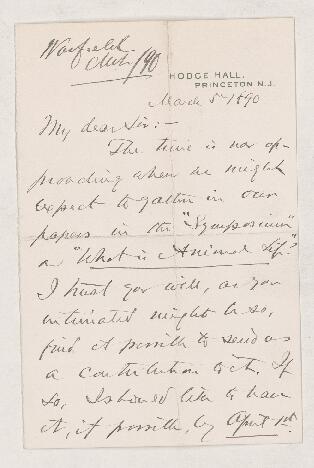 Warfield
Mch /90
HODGE HALL,
PRINCETON N.J.
March 5th 1890
My dear Sir:-
The time is now ap-
proaching when we might
expect to gather in our
papers in the "Symposium"
on "What is Animal Life?"
I trust you will, as you
intimated might be so,
find it possible to send us
a contribution to it. If
so, I should like to have
it, if possible, by April 1st.